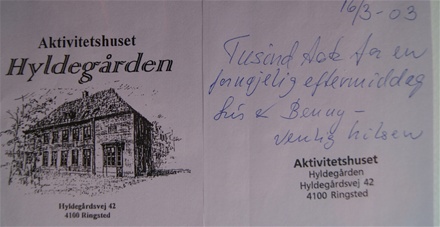 Aktivitetshuset
Hyldegården
Hyldegårdsvej 42
4100 Ringsted
16/3-03
Tusind tak for en
fornøjelig eftermiddag
Benny -
venlig hilsen
Aktivitetshuset
Hyldegården
Hyldegårdsvej 42
4100 Ringsted